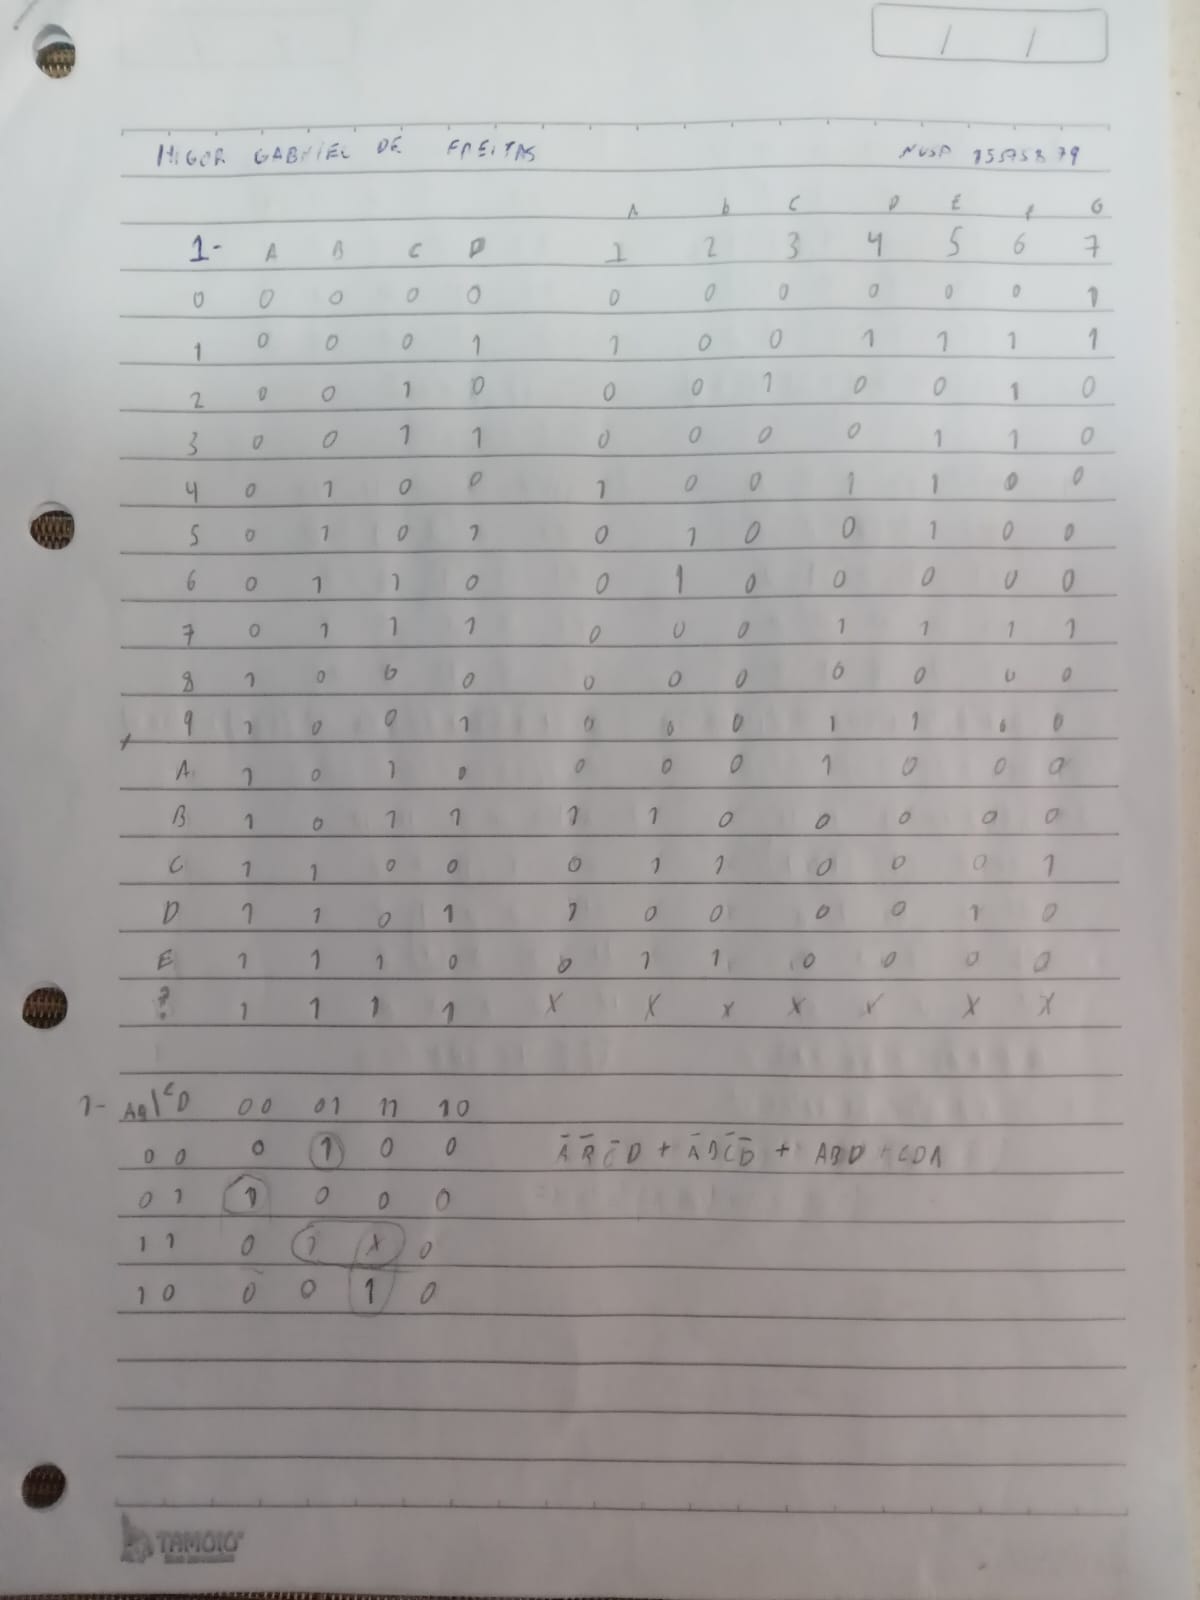 / /
HIGOR GABRIEL DE FREITAS NUSP
A b C D E F G
1- A B C D 1 2 3 4 5 6 7
0 0 0 0 0 0 0 0 0 0 0 1
1 0 0 0 1 1 0 0 1 1 1 1
2 0 0 1 0 0 0 1 0 0 1 0
3 0 0 1 1 0 0 0 0 1 1 0
4 0 1 0 0 1 0 0 1 1 0 0
5 0 1 0 1 0 1 0 0 1 0 0
6 0 1 1 0 0 1 0 0 0 0 0
7 0 1 1 1 0 0 0 1 1 1 1
8 1 0 0 0 0 0 0 0 0 0 0
9 1 0 0 1 0 0 0 1 1 0 0
A 1 0 1 0 0 0 0 1 0 0 0
B 1 0 1 1 1 1 0 0 0 0 0
C 1 1 0 0 0 1 1 0 0 0 1
D 1 1 0 1 1 0 0 0 0 1 0
E 1 1 1 0 0 1 1 0 0 0 0
? 1 1 1 1 X X X X X X X
1- AB\CD 00 01 11 10
00 0 1 0 0 A̅B̅C̅D + A̅BC̅D̅ + ABD + CDA
01 1 0 0 0
11 0 1 X 0
10 0 0 1 0
TAMOIO